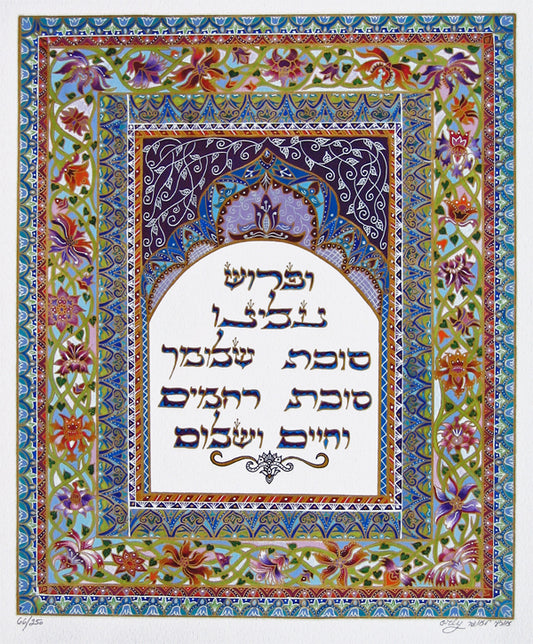 ופרוש
עלינו
סוכת שלומך
סוכת רחמים
וחיים ושלום
66/250